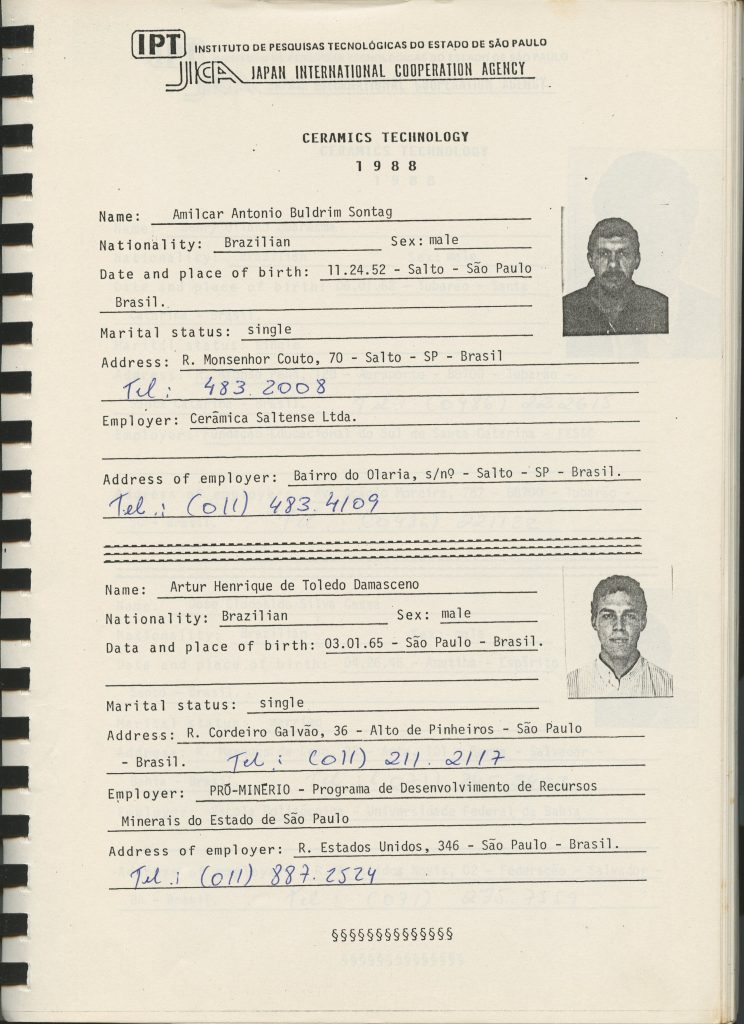 IPT INSTITUTO DE PESQUISAS TECNOLÓGICAS DO ESTADO DE SÃO PAULO
JICA JAPAN INTERNATIONAL COOPERATION AGENCY
CERAMICS TECHNOLOGY
1988
Name: Amilcar Antonio Buldrim Sontag
Nationality: Brazilian Sex: male
Date and place of birth: 11.24.52 - Salto - São Paulo
Brasil.
Marital status: single
Address: R. Monsenhor Couto, 70 - Salto - SP - Brasil
Tel: 483.2008
Employer: Cerâmica Saltense Ltda.
Address of employer: Bairro do Olaria, s/nº - Salto - SP - Brasil.
Tel.: (011) 483.4109
Name: Artur Henrique de Toledo Damasceno
Nationality: Brazilian Sex: male
Data and place of birth: 03.01.65 - São Paulo - Brasil.
Marital status: single
Address: R. Cordeiro Galvão, 36 - Alto de Pinheiros - São Paulo
- Brasil. Tel: (011) 211.2117
Employer: PRÓ-MINÉRIO - Programa de Desenvolvimento de Recursos
Minerais do Estado de São Paulo
Address of employer: R. Estados Unidos, 346 - São Paulo - Brasil.
Tel.: (011) 887.2524
§§§§§§§§§§§§§§